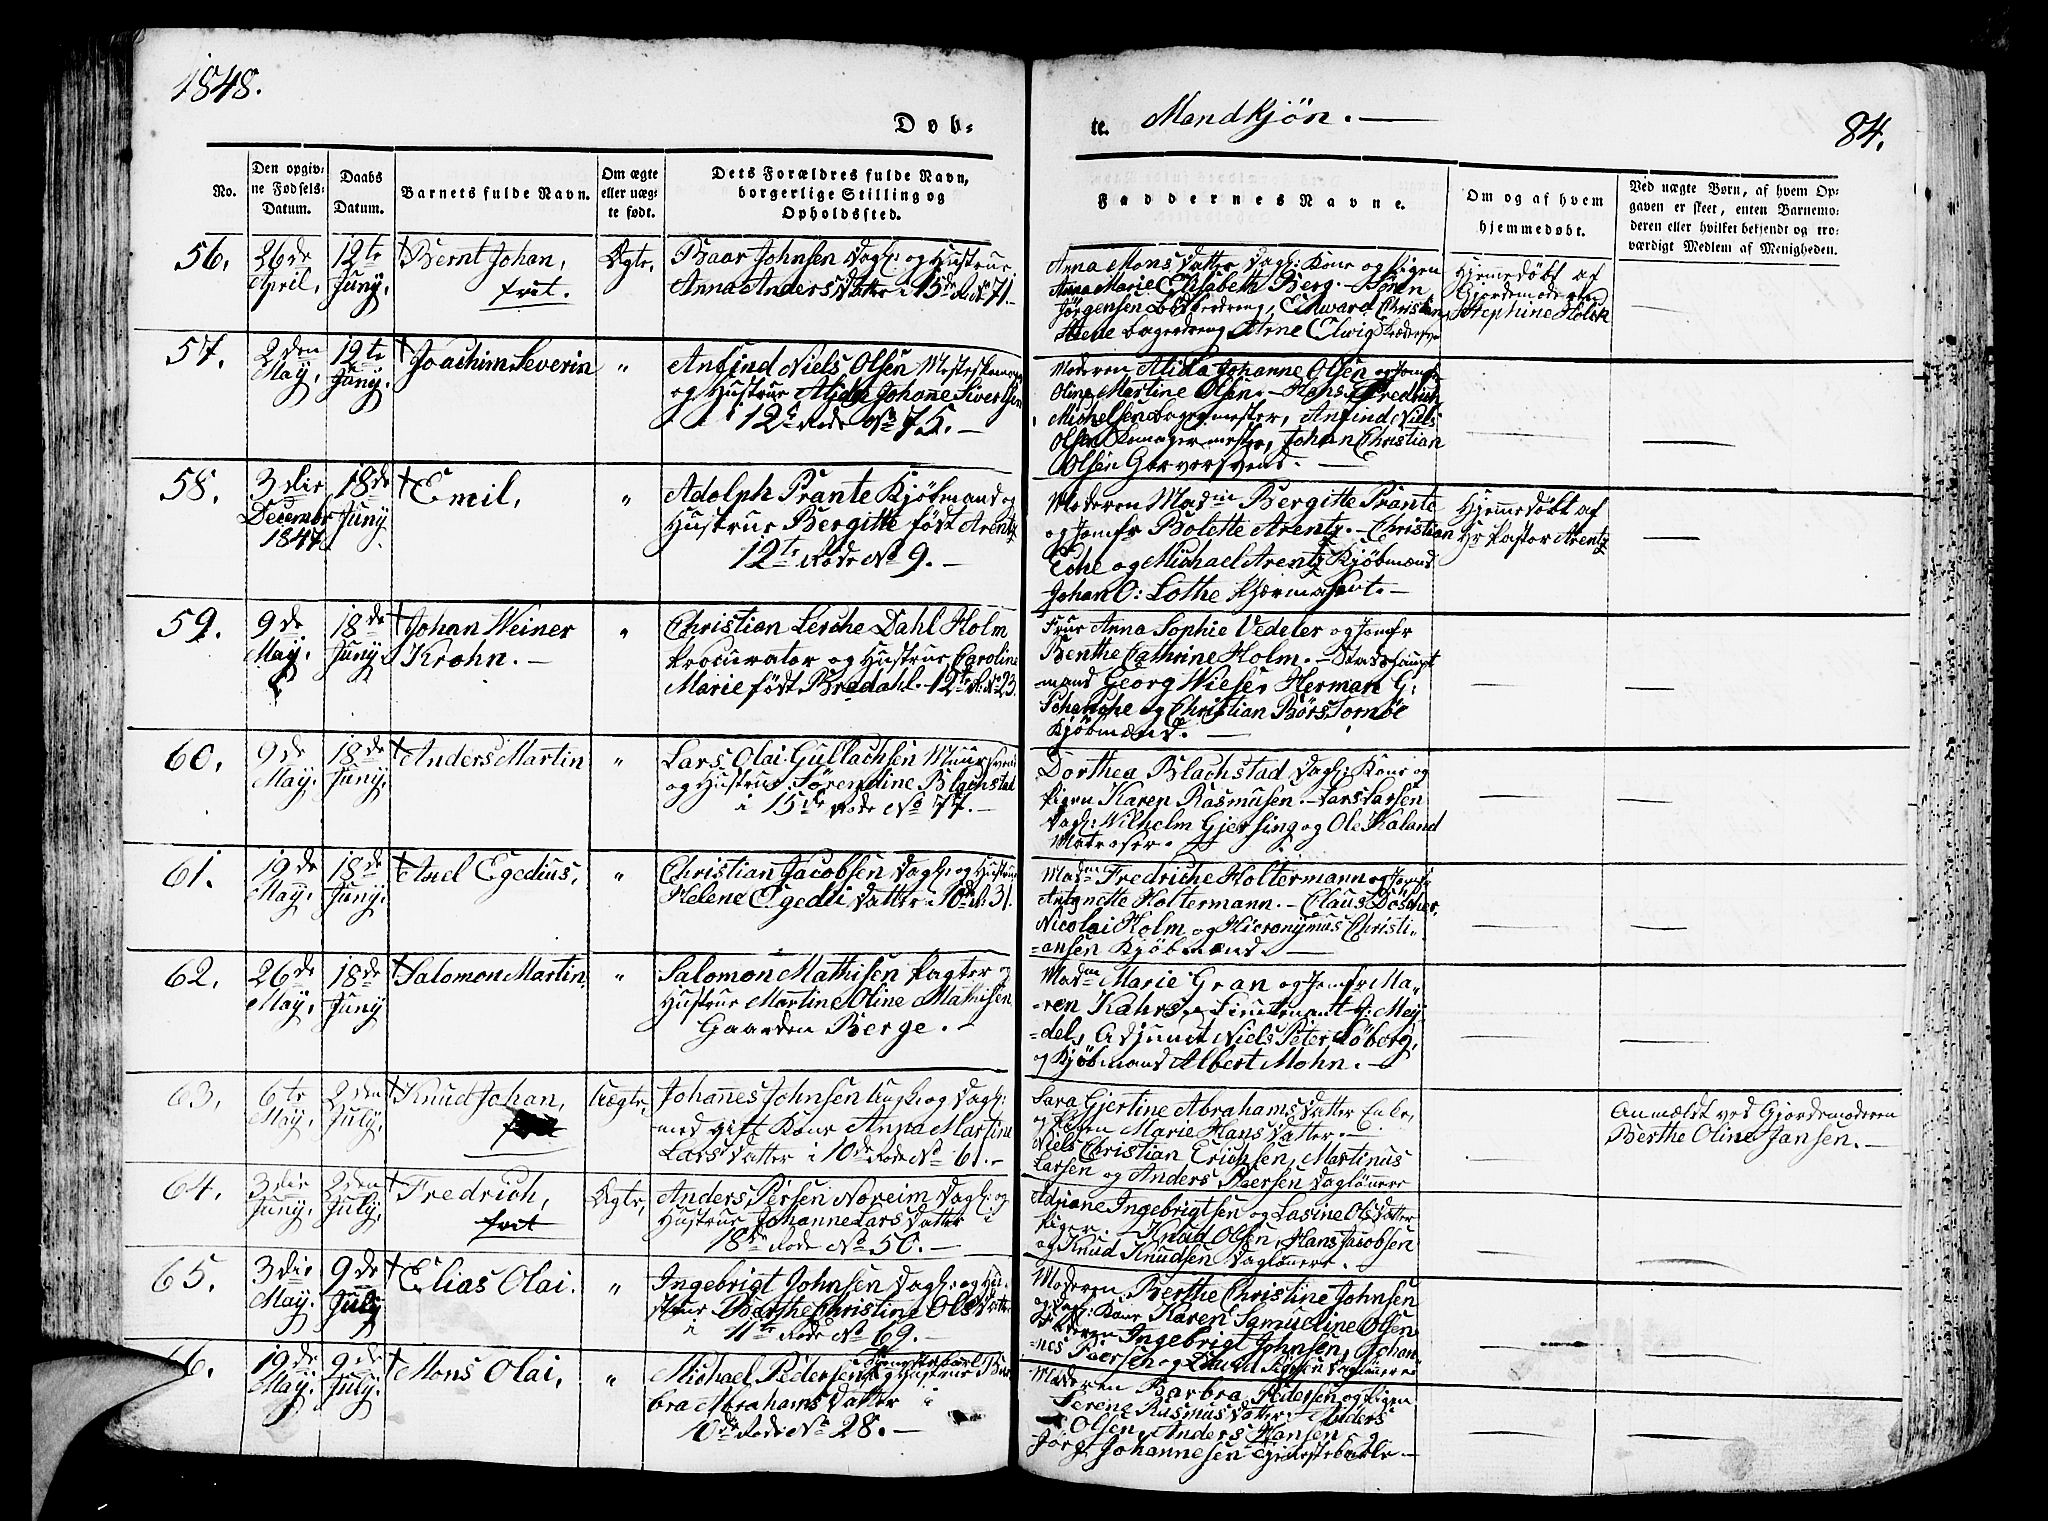 1848.
Døb-
te. Mandkjön. —
84.
No.
Den opgiv-
ne Fødsels-
Datum.
Daabs
Datum.
Barnets fulde Navn.
Om ægte
eller uæg-
te født.
Dets Forældres fulde Navn,
borgerlige Stilling og
Opholdssted.
Faddernes Navne.
Om og af hvem
hjemmedøbt.
Ved uægte Børn, af hvem Op-
gaven er skeet, enten Barnemo-
deren eller hvilket bekjendt og tro-
værdigt Medlem af Menigheden.
56.
26de
April,
12te
Juny,
Bernt Johan,
frit.
Ægte,
Baar Johnsen Dagl: og Hustrue
Anna Anders Datter i 15de R: No 71.
Anna Mons Datter Dagl: Kone og Pigen
Anna Marie Elisabeth Berg. — Sören
Jörgensen Bödkerdreng, Edward Christian
Bagerdreng Arne Elwig
Hjemedöbt af
Gjordemoderen
Stephine Holck
57.
2den
May,
12te
Juny,
Joachim Severin
"
Anfind Niels Olsen
og Hustrue Alida Johane Sivertsen
i 12te Rode No 75. —
Moderen Alida Johanne Olsen og Jomfr
Oline Martine Olsen. — Hans Fredrik
Michelsen Bagermester, Anfind Niels
Olsen Johan Christian
Olsen Garversvend. —
58.
3die
Decembr
1847.
18de
Juny
Emil,
"
Adolph Prante Kjöbmand og
Hustrue Bergitte födt Arentz
12te Rode No 9. —
Moderen Madm Bergitte Prante
og Jomfr Bolette Arentz. — Christian
Eche og Michael Arentz Kjöbmænd
Johan O: Lothe
Hjemmedöbt af
Hr Pastor Arentz
59.
9de
May,
18de
Juny.
Johan Weiner
Krohn. —
"
Christian Lerche Dahl Holm
Procurator og Hustrue Caroline
Marie födt Bredahl. — 12te R: No 23.
Frue Anna Sophie Vedeler og Jomfr
Benthe Cathrine Holm. — Stadshaupt
mand Georg Wiese, Herman G:
Schenche og Christian Börs Tornöe
Kjöbmænd. —
60.
9de
May.
18de
Juny.
Anders Martin
"
Lars Olai Gullachsen Muursvend
og Hustrue Sörendine Blachstad
i 15de Rode No 77. —
Dorthea Blachstad Dagl: Kone og
Pigen Karen Rasmusen. — Lars Larsen
Dagl: Wilhelm Gjersing og Ole Kaland
Matroser. —
61.
19de
May.
18de
Juny.
Axel Egedius,
"
Christian Jacobsen Dagl: og Hustrue
Helene Egedii Datter i 10de R: 31.
Madm Fredriche Holtermann og Jomfr
Antonette Holtermann. — Claus Döscher,
Nicolai Holm og Hieronymus Christi-
=ansen Kjöbmænd. —
62.
26de
May.
18de
Juny
Salomon Martin,
"
Salomon Mathisen Pagter og
Hustrue Martine Oline Mathisen
Gaarden Berge. —
Madm Marie Gran og Jomfr Ma-
=ren Kahrs, Lieutenant J: Mey
=del, Adjunct Niels Peter Söborg,
og Kjöbmand Albert Mohn. —
63.
6te
May,
2den
July.
Knud Johan,
frit
Uægte,
Johannes Johnsen Ungk: og Dagl:
med gift Kone Anna Martine
Lars Datter i 10de Rode No 61. —
Lara Gjertine Abrahams Datter Enke,
og Pigen Marie Hans Datter. —
Niels Christian Erichsen, Martinus
Larsen og Anders Peersen Daglönnere
Anmældt ved Gjordemoderen
Berthe Oline Jansen. —
64.
3die
Juny,
2den
July,
Fredrich,
frit
Ægte,
Anders Persen Noreim Dagl: og
Hustrue Johanne Lars Datter i
18de Rode No 50. —
Adriane Ingebrigtsen og Lasine Ols Datter
Piger. Knud Olsen, Hans Jacobsen
og Knud Knudsen Daglönnere. —
65.
3die
May.
9de
July
Elias Olai.
"
Ingebrigt Johnsen Dagl: og Hu-
strue Berthe Christine Ols Datter
i 11te Rode No 69. —
Moderen Berthe Christine Johnsen
og Dagl: Kone Karen Samueline Olsen
Faderen Ingebrigt Johnsen, Johan-
=nes Peersen og Daglönnere
66.
19de
May.
9de
July.
Mons Olai,
"
Michael Pedersen og Hustrue Bar
bra Abrahams Datter i
10de Rode No 28. —
Moderen Barbra Pedersen og Pigen
Serene Rasmus Datter. Anders
Olsen, Anders Hansen og
Jörg: Johannesen Tjenestekarle —